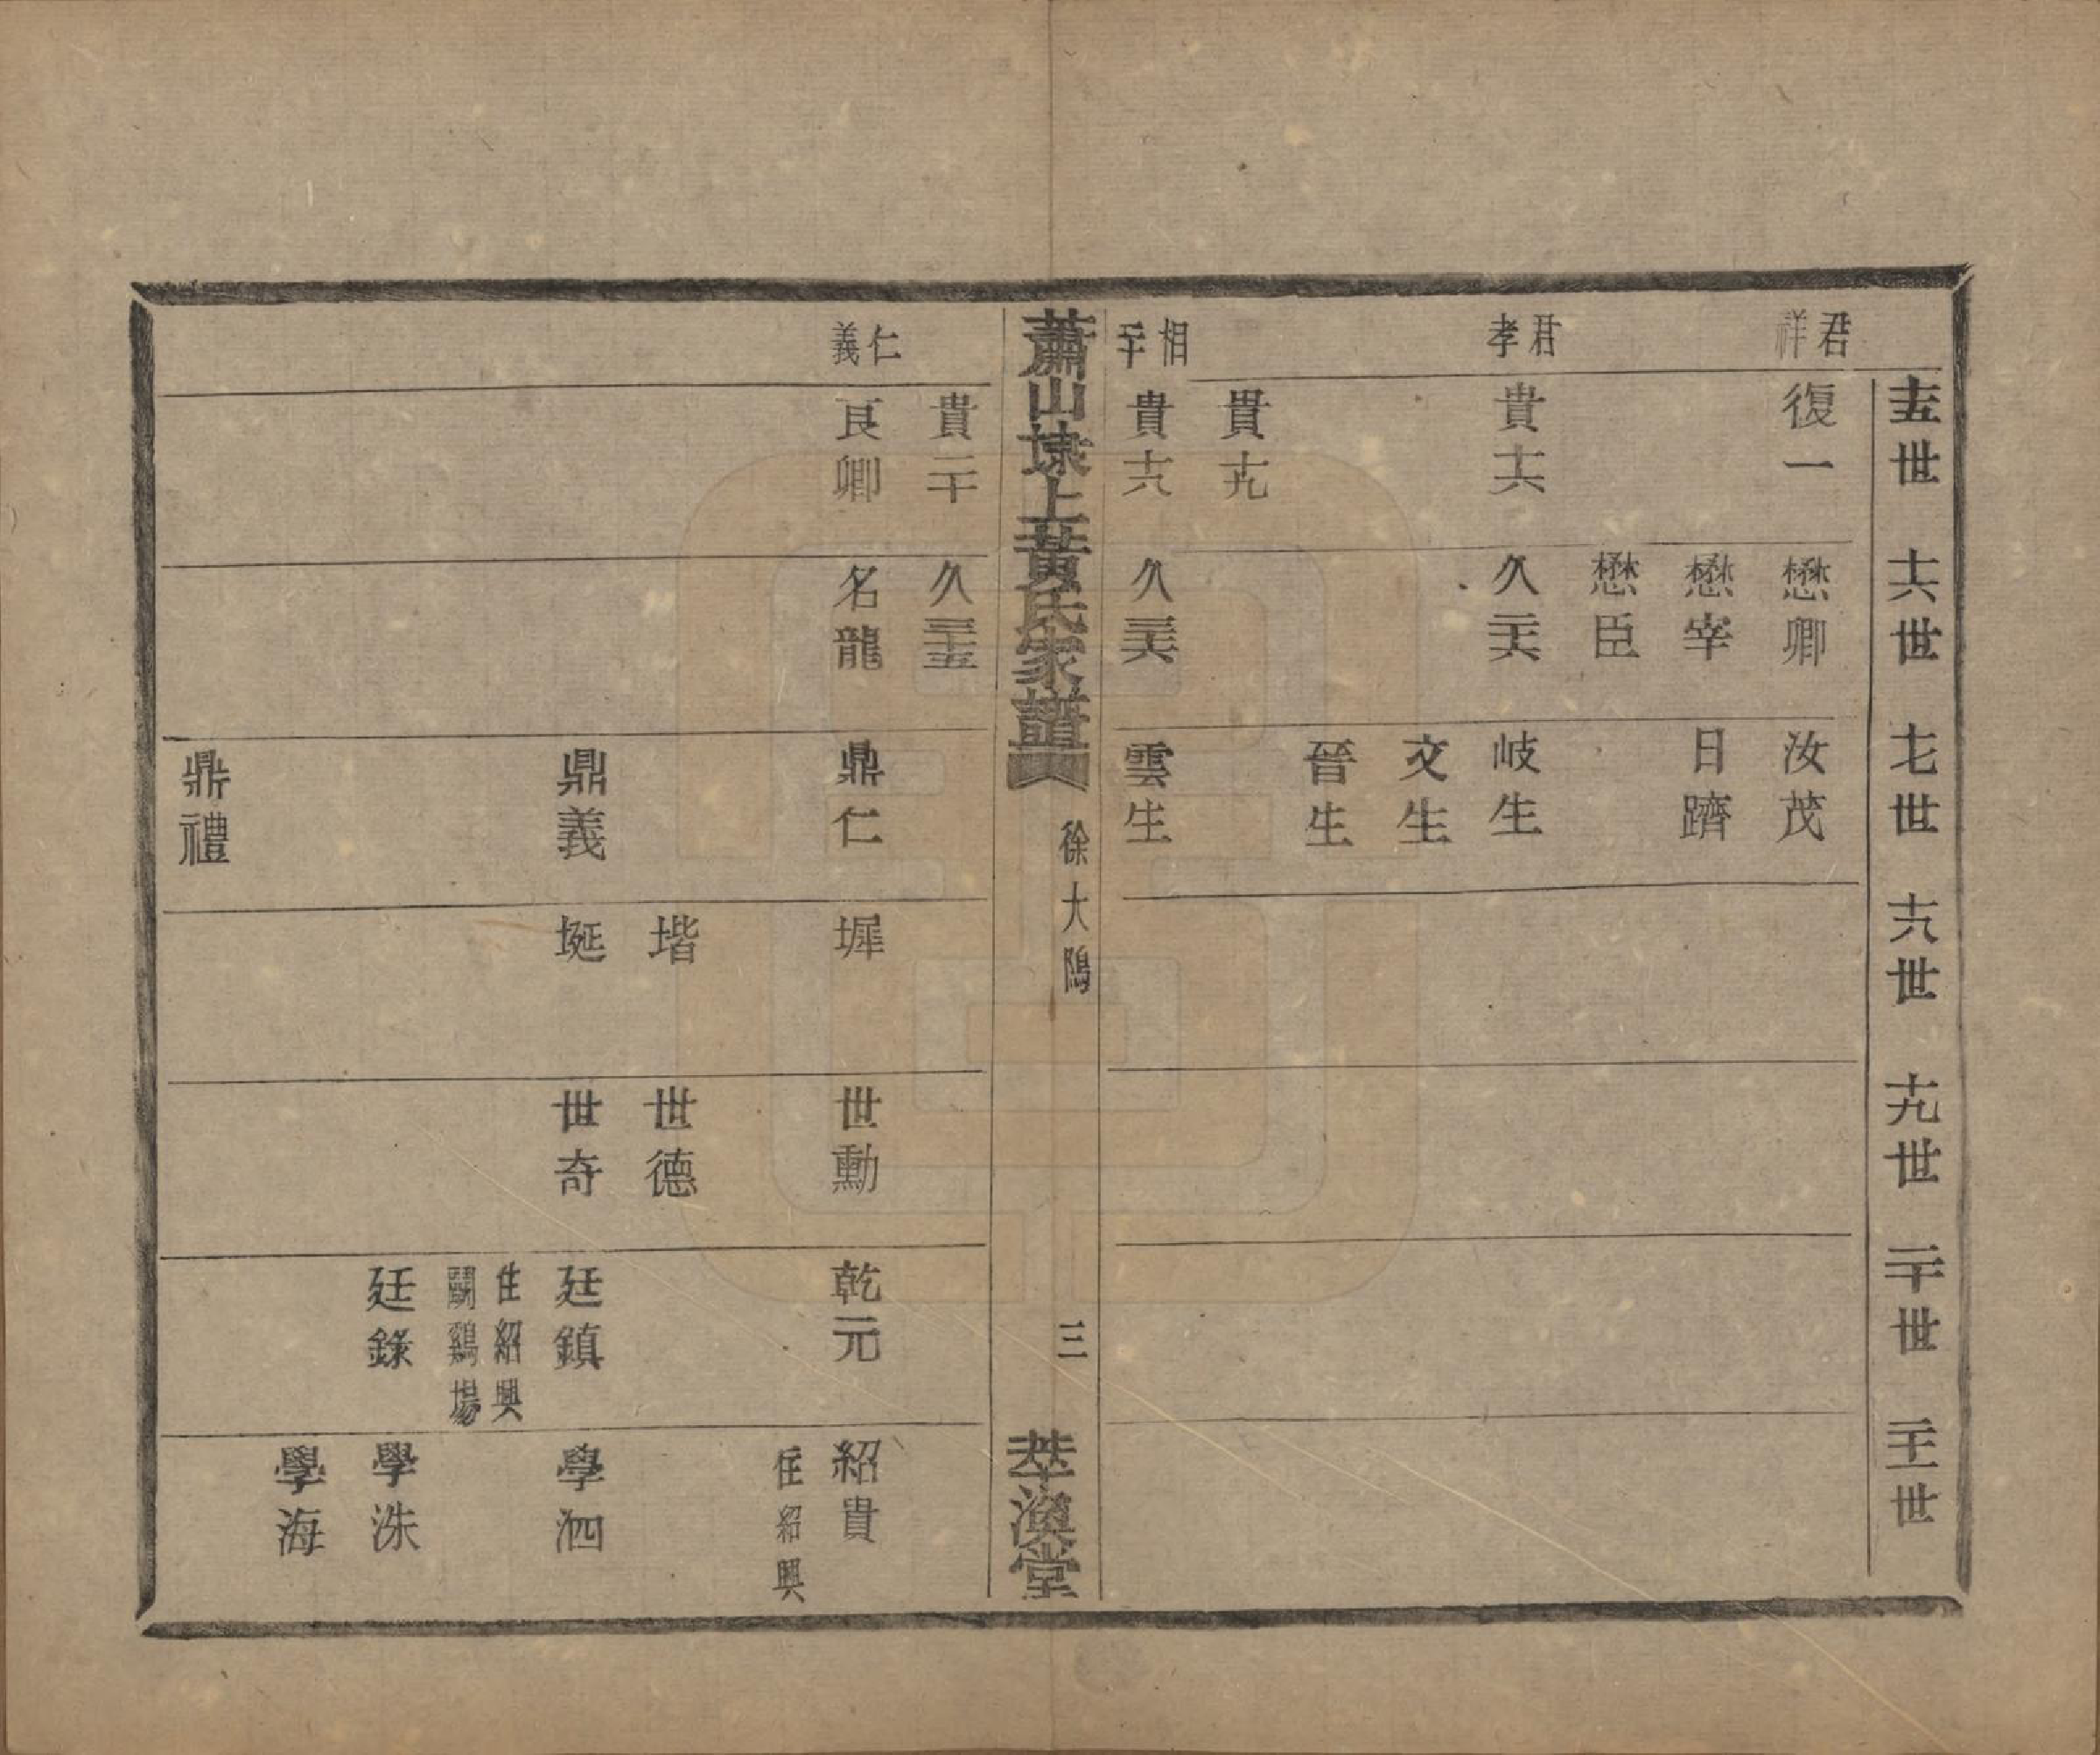 十五世 十六世 十七世 十八世 十九世 二十世 二十一世
君祥 復一 懋卿 汝茂
懋宰 日躋
懋臣
君孝 貴十六 久二十六 岐生
文生
晉生
貴十九
相二十 貴十八 久三十六 雲生
蕭山埭上黃氏家譜 徐大隖 三 萃渙堂
貴二十 久三十五
仁義 良卿 名龍 鼎仁 墀 世勳 乾元 紹貴
住紹興
堦 世德
鼎義 埏 世奇 廷鎮 學泗
住紹興
鬭鷄場
廷錄 學洙
學海
鼎禮